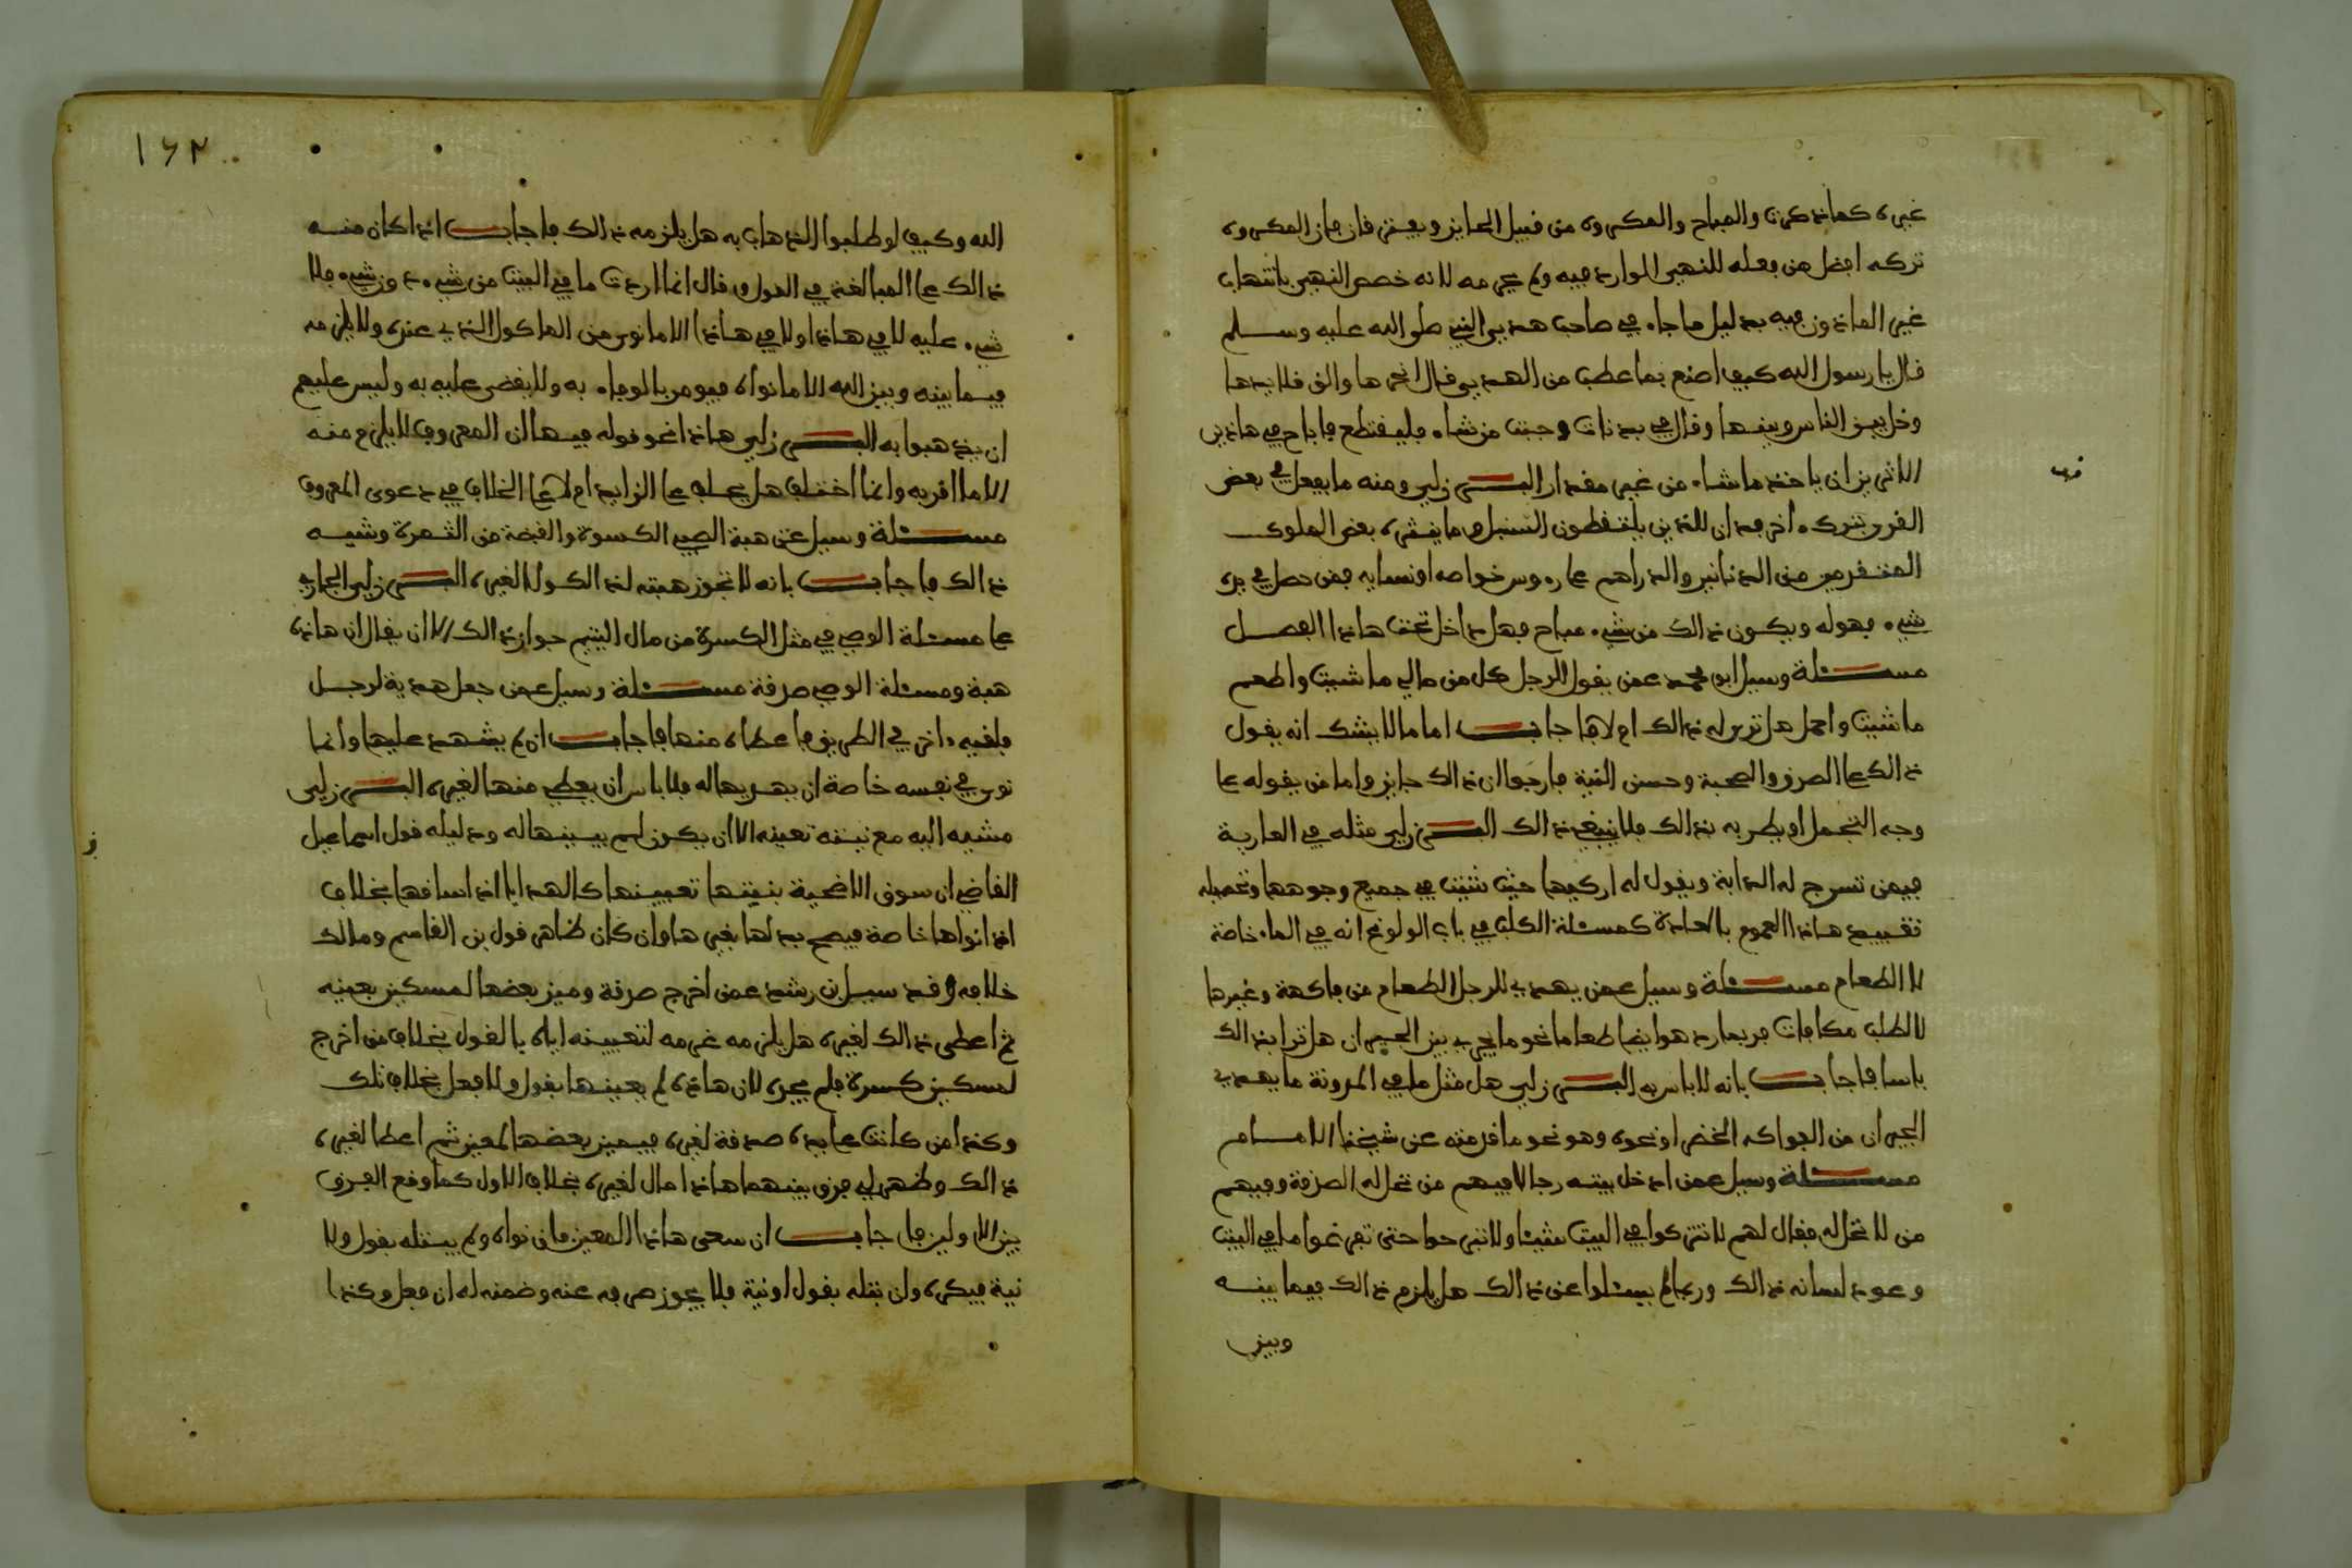 غيره كما ذكرت والمباح والمكروه من قبيل الجايز ويعتبر فان قان المكروه
تركه افضل من فعله للنهي الوارد فيه ولم يحرمه لانه خصص النهي بانتهاب
غير الماذون فيه بدليل ما جاء في صاحب هدي النبي صلى الله عليه وسلم
قال يا رسول الله كيف اصنع بما عطب من الهدي قال انحرها والق قلايدها
وخل بين الناس وبينها وقال في بدنات وجبت من شاء فليقتطع فاباح في هاذين
الاثرين ان ياخذ ما شاء من غير مقدار البرزلي ومنه ما يفعل في بعض
القرى بترك اخر فدان للذين يلتقطون السنبل وما ينثره بعض الملوك
المتقدمين من الدنانير والدراهم على رءوس خواصه او نسايه فمن حصل في يده
شيء فهو له ويكون ذالك من شيء مباح فهل داخل تحت هاذا الفصل
مسئلة وسيل ابو محمد عمن يقول لرجل كل من مالي ما شيت واطعم
ما شيت واحمل هل ترى له ذالك ام لا فاجاب اما ما لا يشك انه يقول
ذالك على الصدق والصحبة وحسن النية فارجوا ان ذالك جايز واما من يقوله على
وجه التجمل او يظن به ذالك فلا ينبغي ذالك البرزلي مثله في العارية
فيمن تسرج له الدابة ويقول له اركبها حيث شيت في جميع وجوهها وتحصيله
تقييد هاذا العموم بالعادة كمسئلة الكلب في باب الولوغ انه في الماء خاصة
لا الطعام مسئلة وسيل عمن يهدي للرجل الطعام من فاكهة وغيرها
لا لطلب مكافات فربما رد هو ايضا طعاما نحو ما يجري بين الجيران هل ترا بذالك
باسا فاجاب بانه لا باس به البرزلي هل مثل ما في المدونة ما يهدي
الجيران من الفواكه الخضر او نحوه وهو نحو ما قدمته عن شيخنا الامام
مسئلة وسيل عمن ادخل بيته رجالا فيهم من تحل له الصدقة وفيهم
من لا تحل له فقال لهم لا تتركوا في البيت شيئا ولا تبرحوا حتى تفرغوا ما في البيت
وعود لسانه ذالك وربما لم يسئلوا عن ذالك هل يلزم ذالك فيما بينه
وبين
١٦٢
الله وكيف لو طلبوا الذهاب به هل يلزمه ذالك فاجاب اذا كان منه
ذالك على المبالغة في القول وقال انما اردت ما في البيت من شيء دون شيء فلا
شيء عليه لا في هاذا ولا في هاذا الا ما نوى من الماكول الذي عنده ولا يلزمه
فيما بينه وبين الله الا ما نواه فيومر بالوفاء به ولا يقضى عليه به وليس عليهم
ان يذهبوا به البرزلي هاذا نحو قوله فيها ان المعروف لا يلزم منه
الا ما اقر به وانما اختلف هل يحلف على الزايد ام لا على الخلاف في دعوى المعروف
مسئلة وسيل عن هبة الصبي الكسوة والقبضة من الثمرة وشبه
ذالك فاجاب بانه لا تجوز هبته لذالك ولا لغيره البرزلي الجاري
على مسئلة الوصي في مثل الكسرة من مال اليتيم جواز ذالك الا ان يقال ان هاذه
هبة ومسئلة الوصي صدقة مسئلة وسيل عمن جعل هدية لرجل
فلقيه ءاخر في الطريق فاعطاه منها فاجاب ان لم يشهد عليها وانما
نوى في نفسه خاصة ان يهديها له فلا باس ان يعطي منها لغيره البرزلي
مشيه اليه مع نيته تعينه الا ان يكون لم يبينها له ودليله قول اسماعيل
القاضي ان سوق الاضحية بنيتها تعيينها كالهدايا اذا ساقها بخلاف
اذا نواها خاصة فيصح بدلها بغيرها وان كان ظاهر قول بن القاسم ومالك
خلافه وقد سيل بن رشد عمن اخرج صدقة وميز بعضها لمسكين بعينه
ثم اعطى ذالك لغيره هل يلزمه غرمه لتعيينه اياه بالقول بخلاف من اخرج
لمسكين كسرة فلم يجده لان هاذه لم يعينها بقول ولا فعل بخلاف تلك
وكذا من كانت على يده صدقة لغيره فيميز بعضها لمعين ثم اعطا لغيره
ذالك وظهر لي فرق بينهما هاذا مال لغيره بخلاف الاول كما وقع الفرق
بين الاولين فاجاب ان سمى هاذا المعين فان نواه ولم يبتله بقول ولا
نية فيكره وان بتله بقول او نية فلا يجوز صرفه عنه وضمنه له ان فعل وكذا